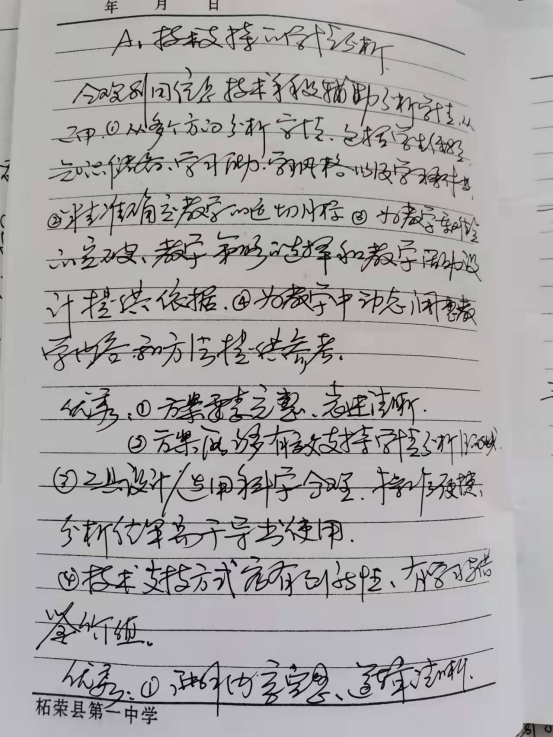 年 月 日
A1 技术支持的学情分析
合理利用信息技术手段辅助分析学情,从
①从多个方面分析学情,包括学生
知识储备、学习能力、学习风格以及学习条件
②准确 教学的 ③为教学
的突破、教学策略的选择和教学活动设
计提供依据.④为教学中动态调整教
学内容和方法提供参考.
优秀:①方案要素完整、表述清晰.
②方案 能够有效支持学情分析的
③工具设计/运用科学合理、操作便捷、
分析结果易于导出使用.
④技术支持方式富有创新性、有学习与借
鉴价值。
优秀:①讲解内容完整、逻辑清晰.
柘荣县第一中学